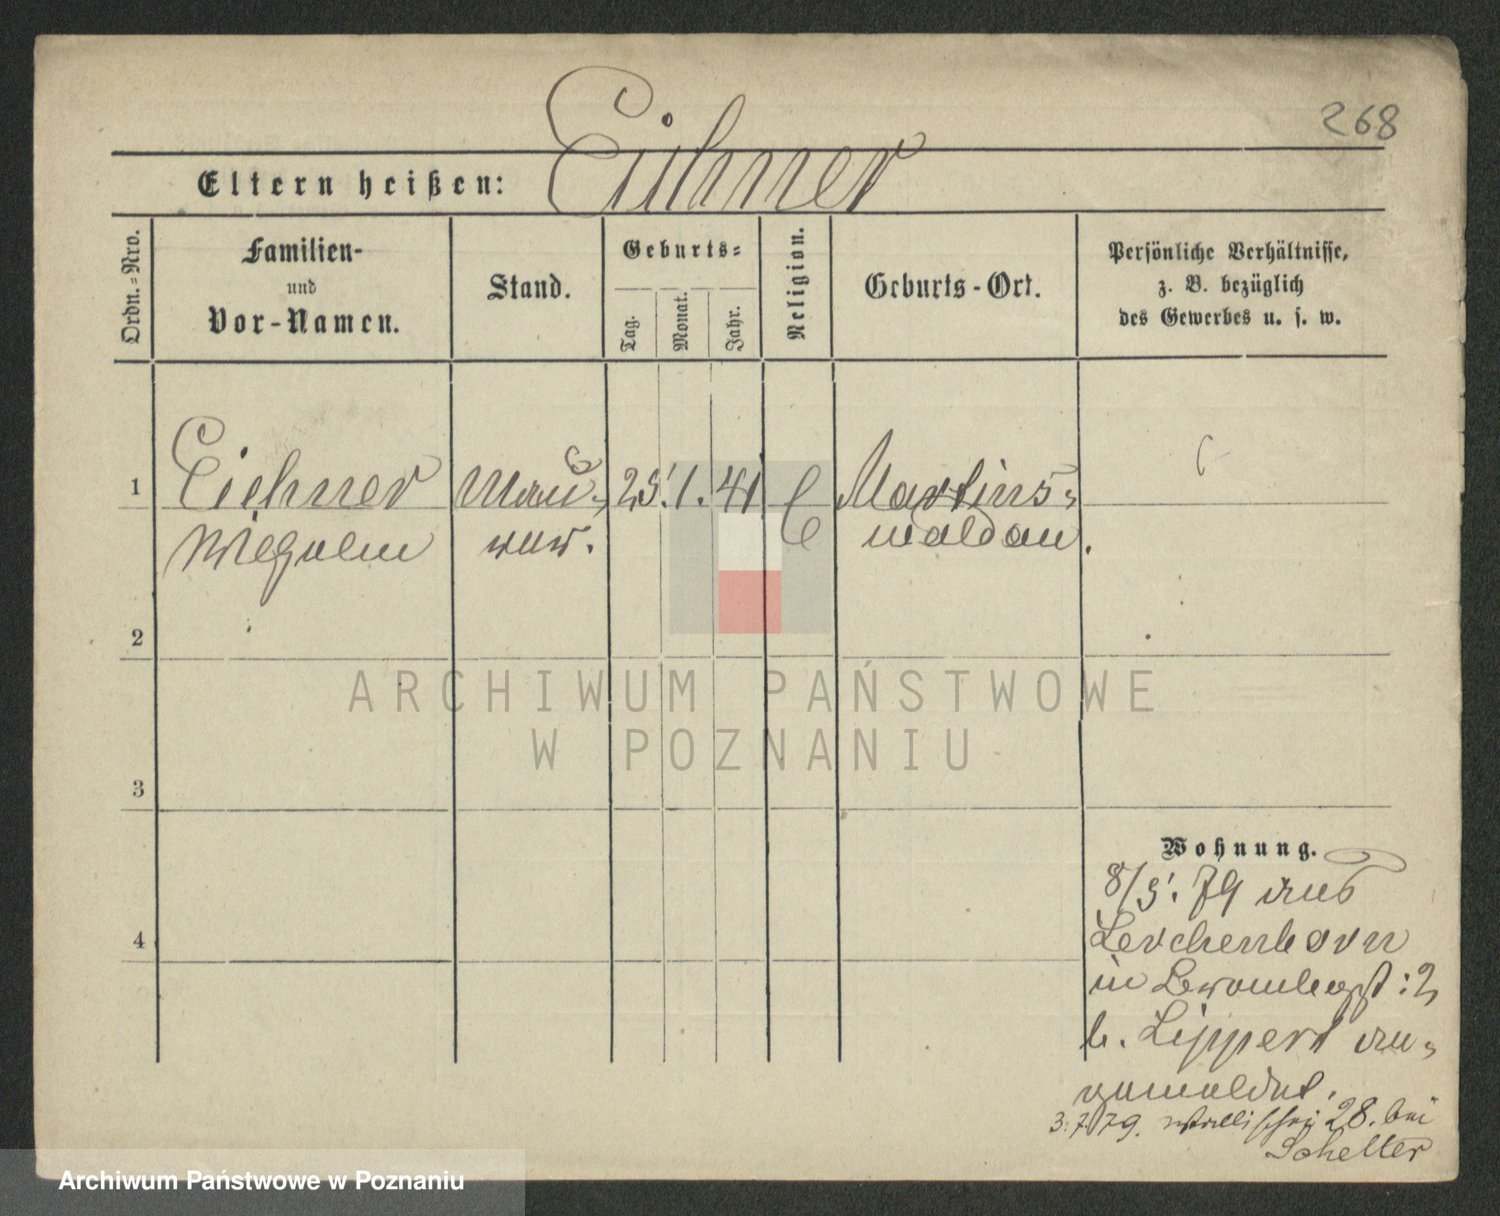 268
Eltern heißen: Eichner
Ordn.-Nro.
Familien-
und
Vor-Namen.
Stand.
Geburts-
Tag.
Monat.
Jahr.
Religion.
Geburts-Ort.
Persönliche Verhältnisse,
z. B. bezüglich
des Gewerbes u. s. w.
1
Eichner
Mau-
25. 1. 41
Martins-
rer.
waldau.
2
3
4
Wohnung.
8/5. 79 aus
Lerchenborn
in
b. Lippert an-
gemeldet.
3. 7. 79. Wallischei 28. bei
Schelter
ARCHIWUM PAŃSTWOWE
W POZNANIU
Archiwum Państwowe w Poznaniu